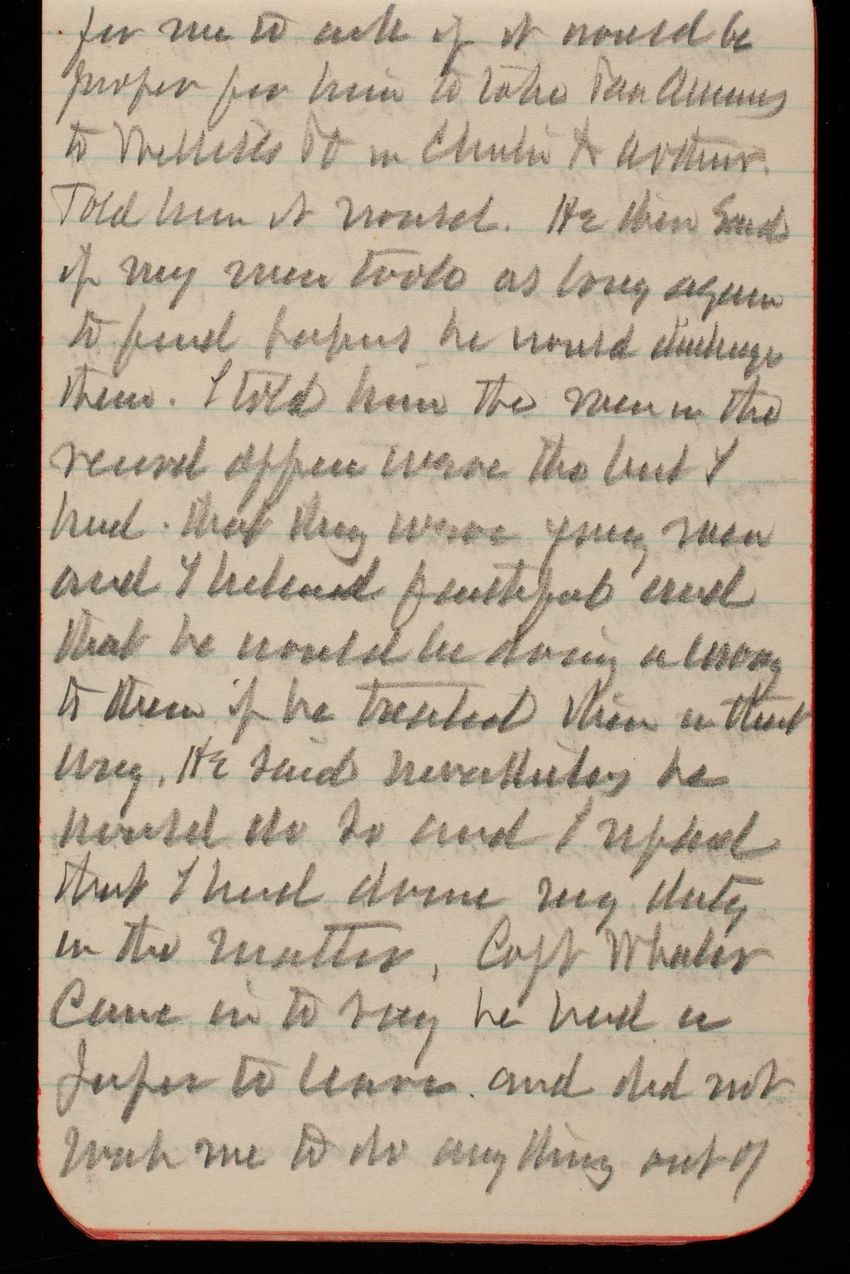 for me to ask if it would be
proper for him to take Van Antwerp
to in Charlie & Arthur.
Told him it would. He then said
if my men took as long again
to find papers he would discharge
them. I told him the men in the
record office were the best I
had. that they were young men
and I believed faithful and
that he would be doing a wrong
to them if he treated them in that
way. He said nevertheless he
would do so and I replied
that I had done my duty
in the matter, Capt Wheeler
came in to say he had a
to leave. and did not
wish me to do anything out of